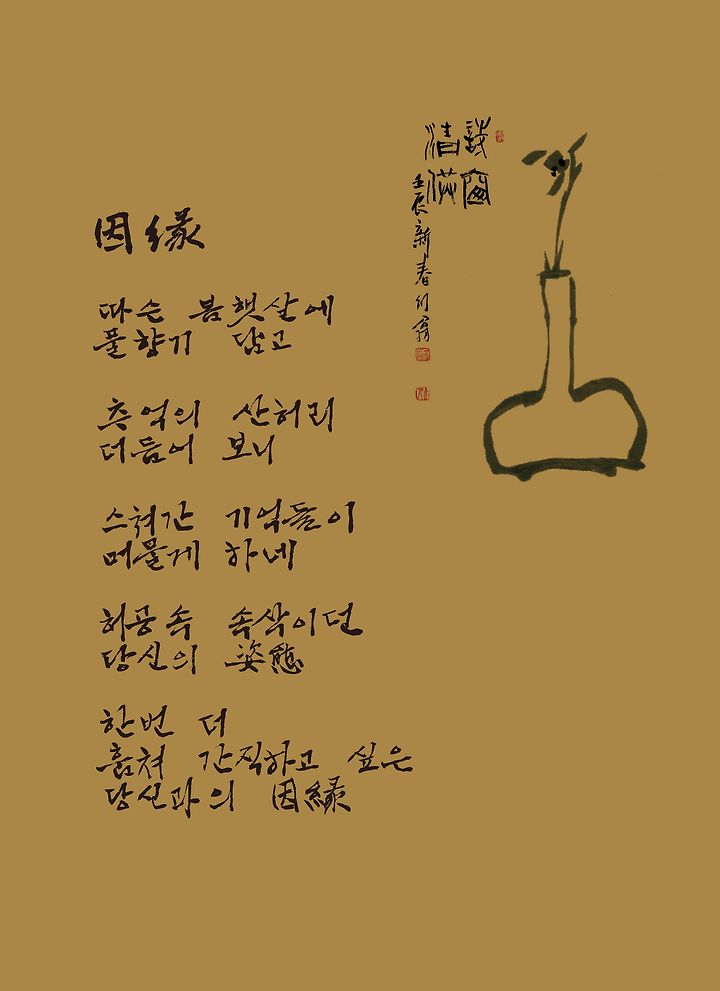 因緣
따슨 봄햇살에
풀향기 담고
추억의 산허리
더듬어 보니
스쳐간 기억들이
머물게 하네
허공속 속삭이던
당신의 姿態
한번 더
훔쳐 간직하고 싶은
당신과의 因緣
詩窗
清供
壬辰新春行